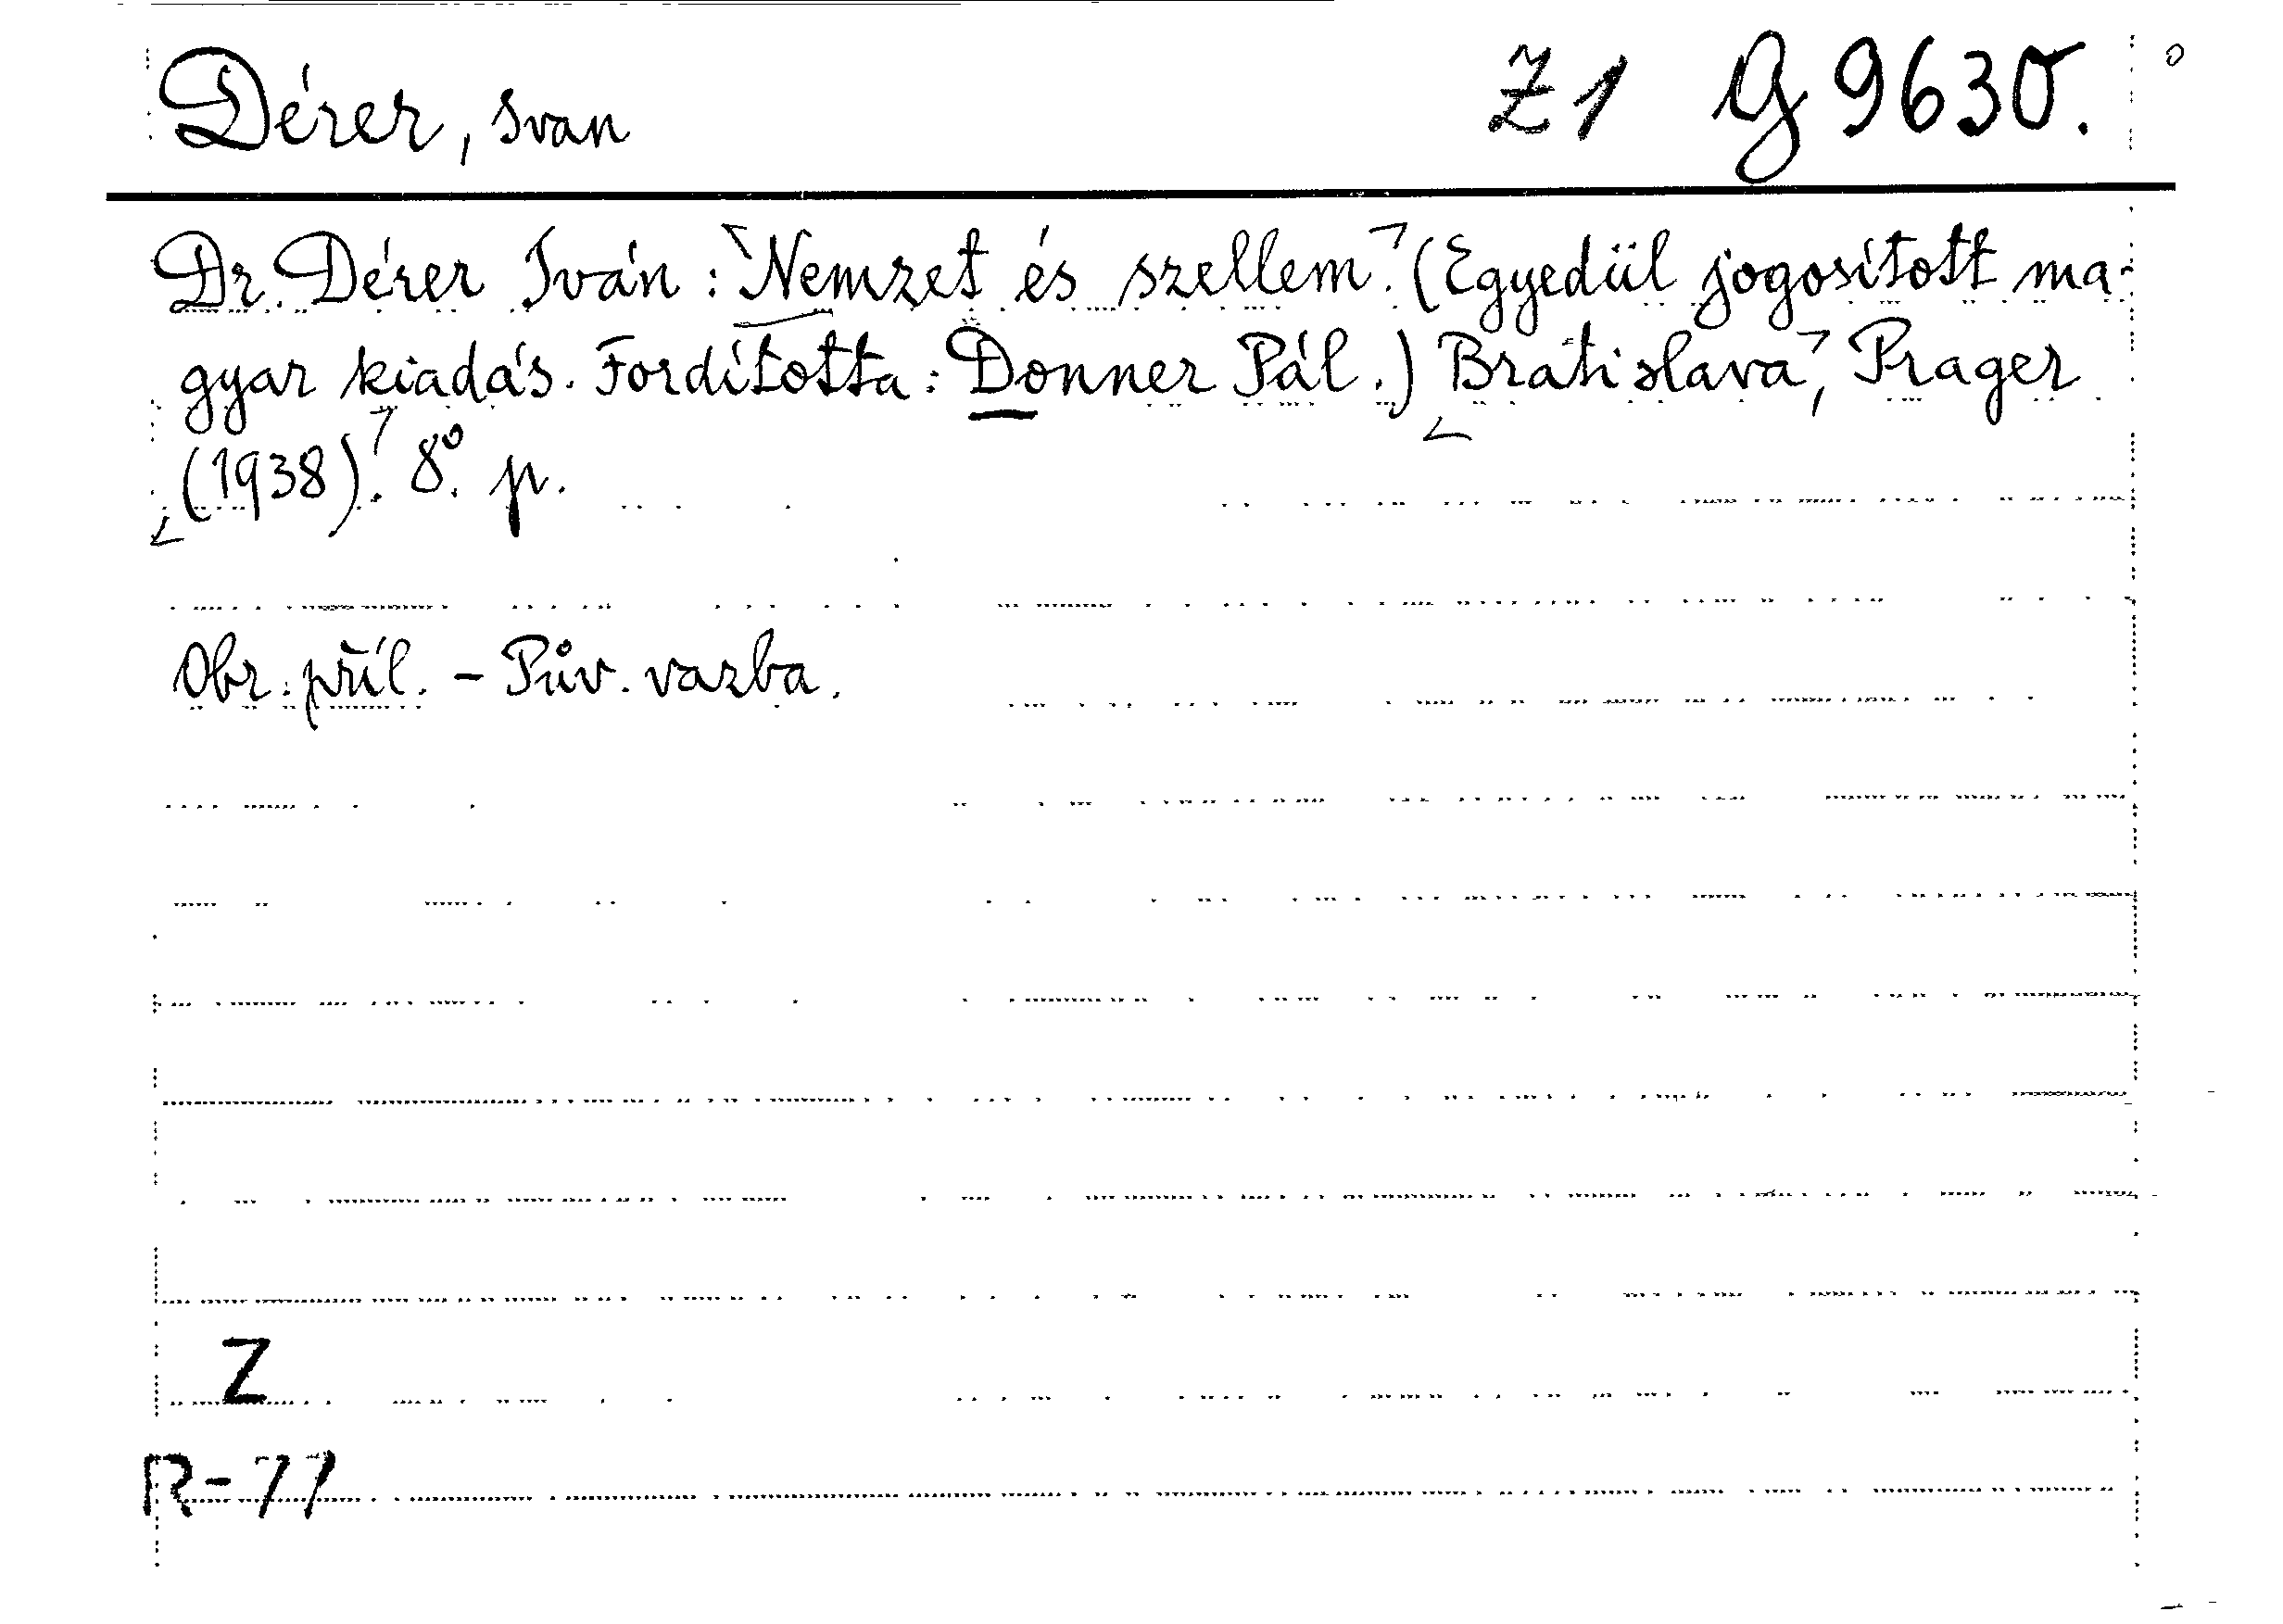 Dérer, Ivan Z1 G 9630.
Dr. Dérer Iván: Nemzet és szellem. (Egyedül jogosított ma-
gyar kiadás. Fordította: Donner Pál.) Bratislava, Prager
(1938). 8°. p.
Obr. příl. - Pův. vazba.
Z
R-77